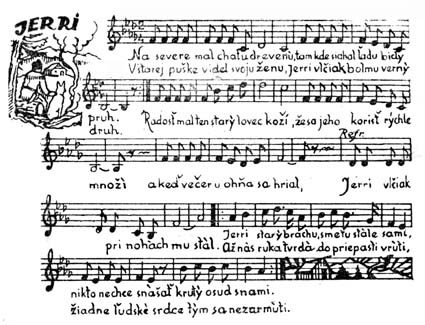 JERRI
Na severe mal chatu drevenú, tam kde siahol ľadu bidy
V starej puške videl svoju ženu, Jerri vlčiak bol mu verný
pruh. Radosť mal ten starý lovec koží, že sa jeho korisť rýchle
druh.
Refr.
množí a keď večer u ohňa sa hrial, Jerri vlčiak
pri nohách mu stál. Jerri starý brachu, sme tu stále sami,
Až nás ruka tvrdá do priepasti vrúti,
nikto nechce snášať krutý osud s nami.
žiadne ľudské srdce tým sa nezarmúti.